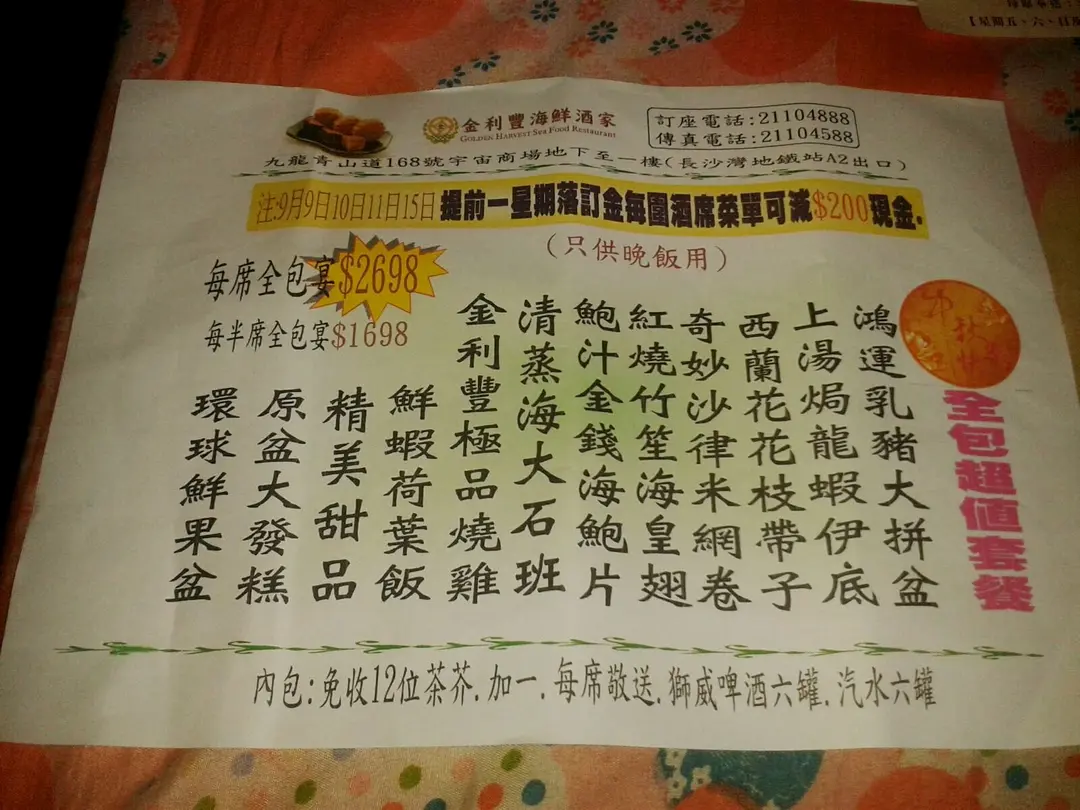 【星期五、六、日及
金利豐海鮮酒家
GOLDEN HARVEST Sea Food Restaurant
訂座電話:21104888
傳真電話:21104588
九龍青山道168號宇宙商場地下至一樓(長沙灣地鐵站A2出口)
注:9月9日10日11日15日提前一星期落訂金每圍酒席菜單可減$200現金.
(只供晚飯用)
每席全包宴$2698
每半席全包宴$1698
全包超值套餐
鴻運乳豬大拼盆
上湯焗龍蝦伊底
西蘭花花枝帶子
奇妙沙律米網卷
紅燒竹笙海皇翅
鮑汁金錢海鮑片
清蒸海大石班
金利豐極品燒雞
鮮蝦荷葉飯
精美甜品
原盆大發糕
環球鮮果盆
內包:免收12位茶芥.加一.每席敬送.獅威啤酒六罐.汽水六罐